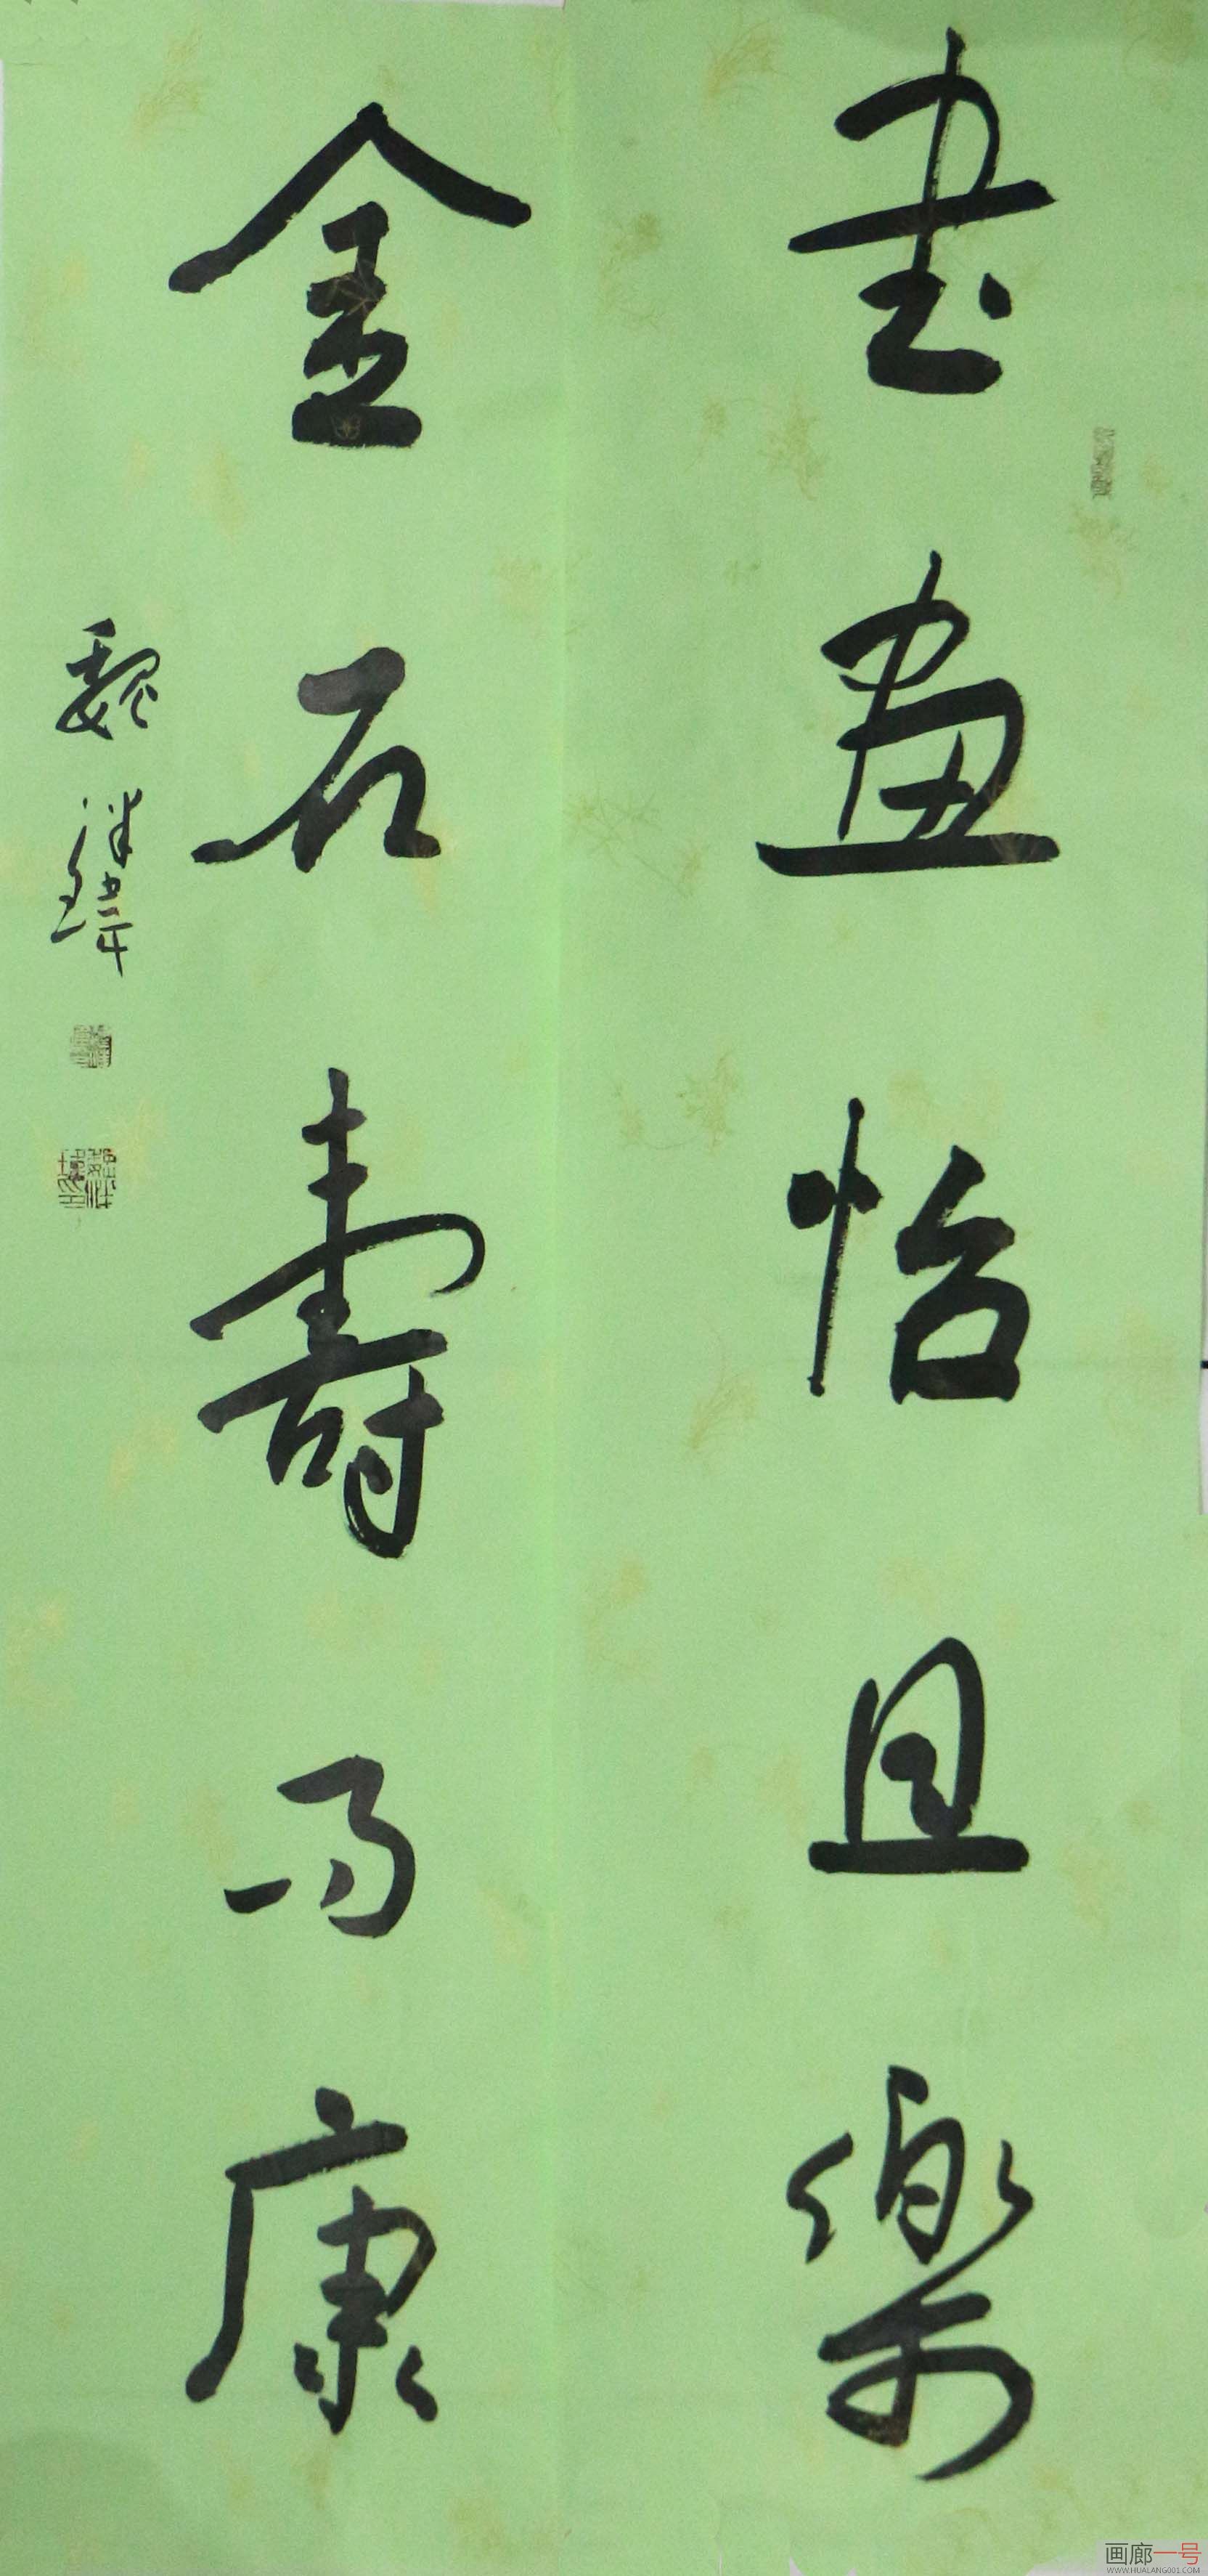 書畫怡且樂
金石壽而康
魏
画廊一号
WWW.HUALANG001.COM